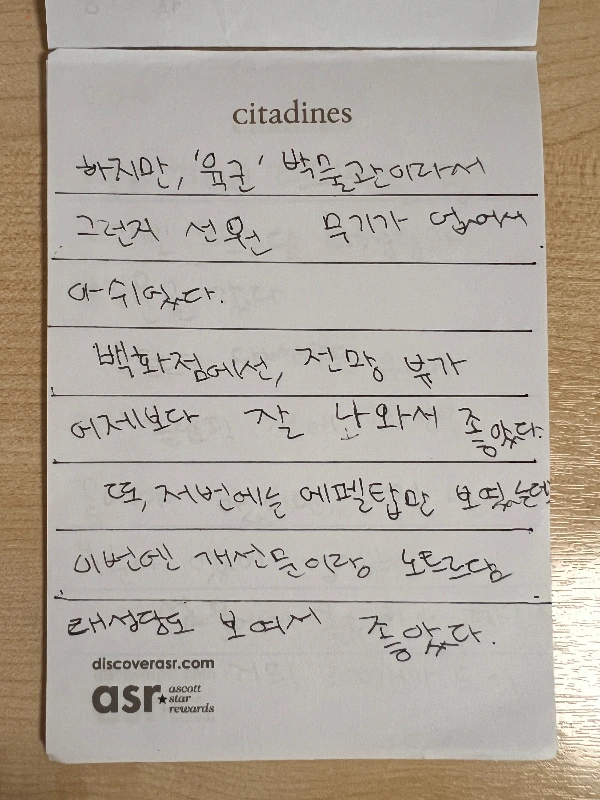 citadines
하지만, '육군' 박물관이라서
그런지 선원 무기가 없어서
아쉬웠다.
백화점에선, 전망 뷰가
어제보다 잘 나와서 좋았다.
또, 저번에는 에펠탑만 보였는데
이번엔 개선문이랑 노트르담
대성당도 보여서 좋았다.
discoverasr.com
asr ascott
star
rewards